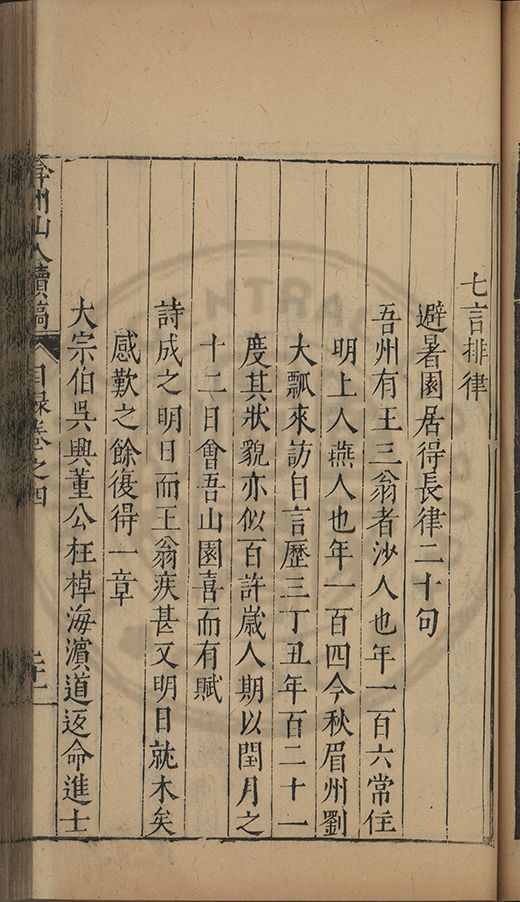 七言排律
避暑園居得長律二十句
吾州有王三翁者沙人也年一百六常住
明上人燕人也年一百四今秋眉州劉
大瓢來訪自言歷三丁丑年百二十一
度其狀貌亦似百許歲人期以閏月之
十二日會吾山園喜而有賦
詩成之明日而王翁疾甚又明日就木矣
感歎之餘復得一章
大宗伯吳興董公枉棹海濵道返命進士
弇州山人續稿
目錄卷之四